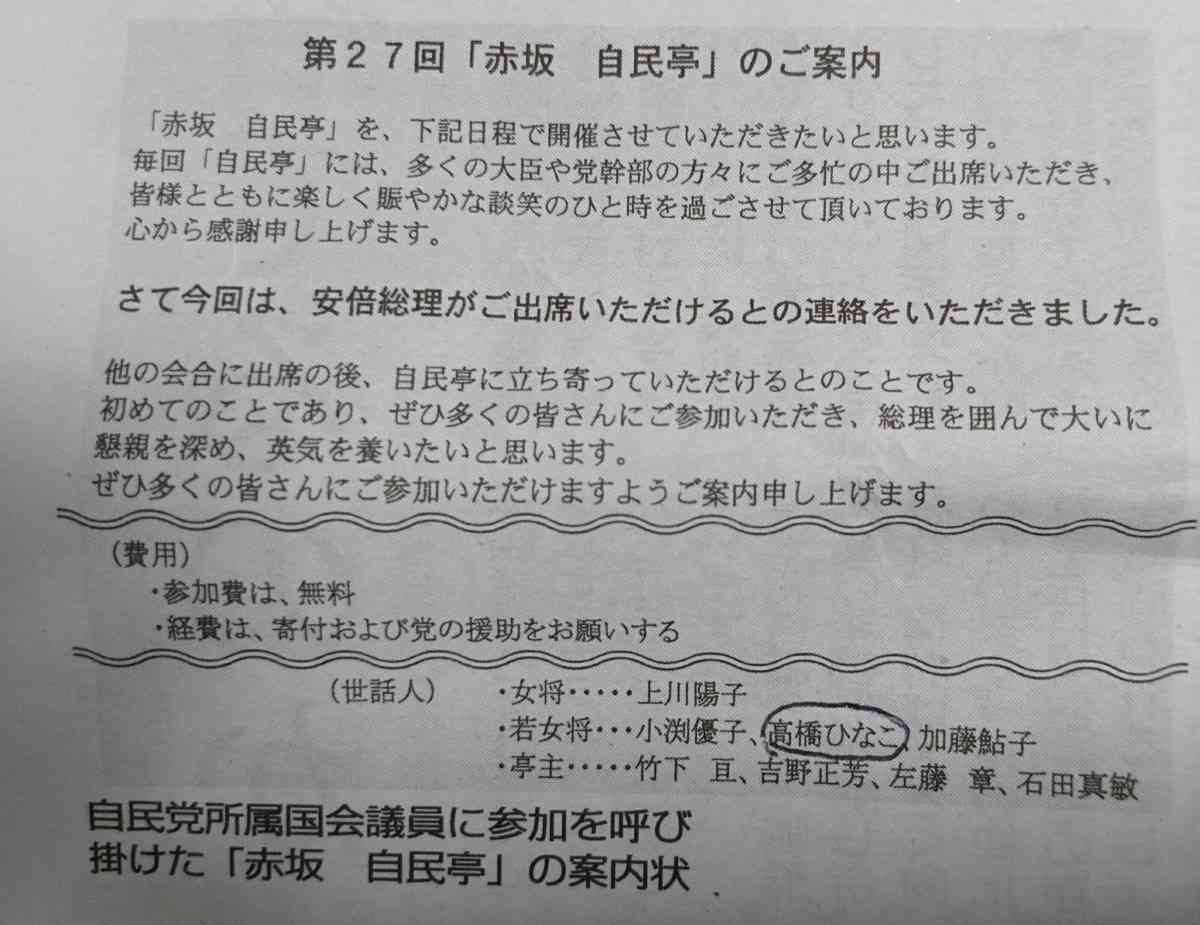 第２７回「赤坂　自民亭」のご案内
「赤坂　自民亭」を、下記日程で開催させていただきたいと思います。
毎回「自民亭」には、多くの大臣や党幹部の方々にご多忙の中ご出席いただき、
皆様とともに楽しく賑やかな談笑のひと時を過ごさせて頂いております。
心から感謝申し上げます。
さて今回は、安倍総理がご出席いただけるとの連絡をいただきました。
他の会合に出席の後、自民亭に立ち寄っていただけるとのことです。
初めてのことであり、ぜひ多くの皆さんにご参加いただき、総理を囲んで大いに
懇親を深め、英気を養いたいと思います。
ぜひ多くの皆さんにご参加いただけますようご案内申し上げます。
（費用）
・参加費は、無料
・経費は、寄付および党の援助をお願いする
（世話人）　・女将・・・・・上川陽子
・若女将・・・小渕優子、高橋ひなこ、加藤鮎子
・亭主・・・・・竹下　亘、吉野正芳、左藤　章、石田真敏
自民党所属国会議員に参加を呼び
掛けた「赤坂　自民亭」の案内状